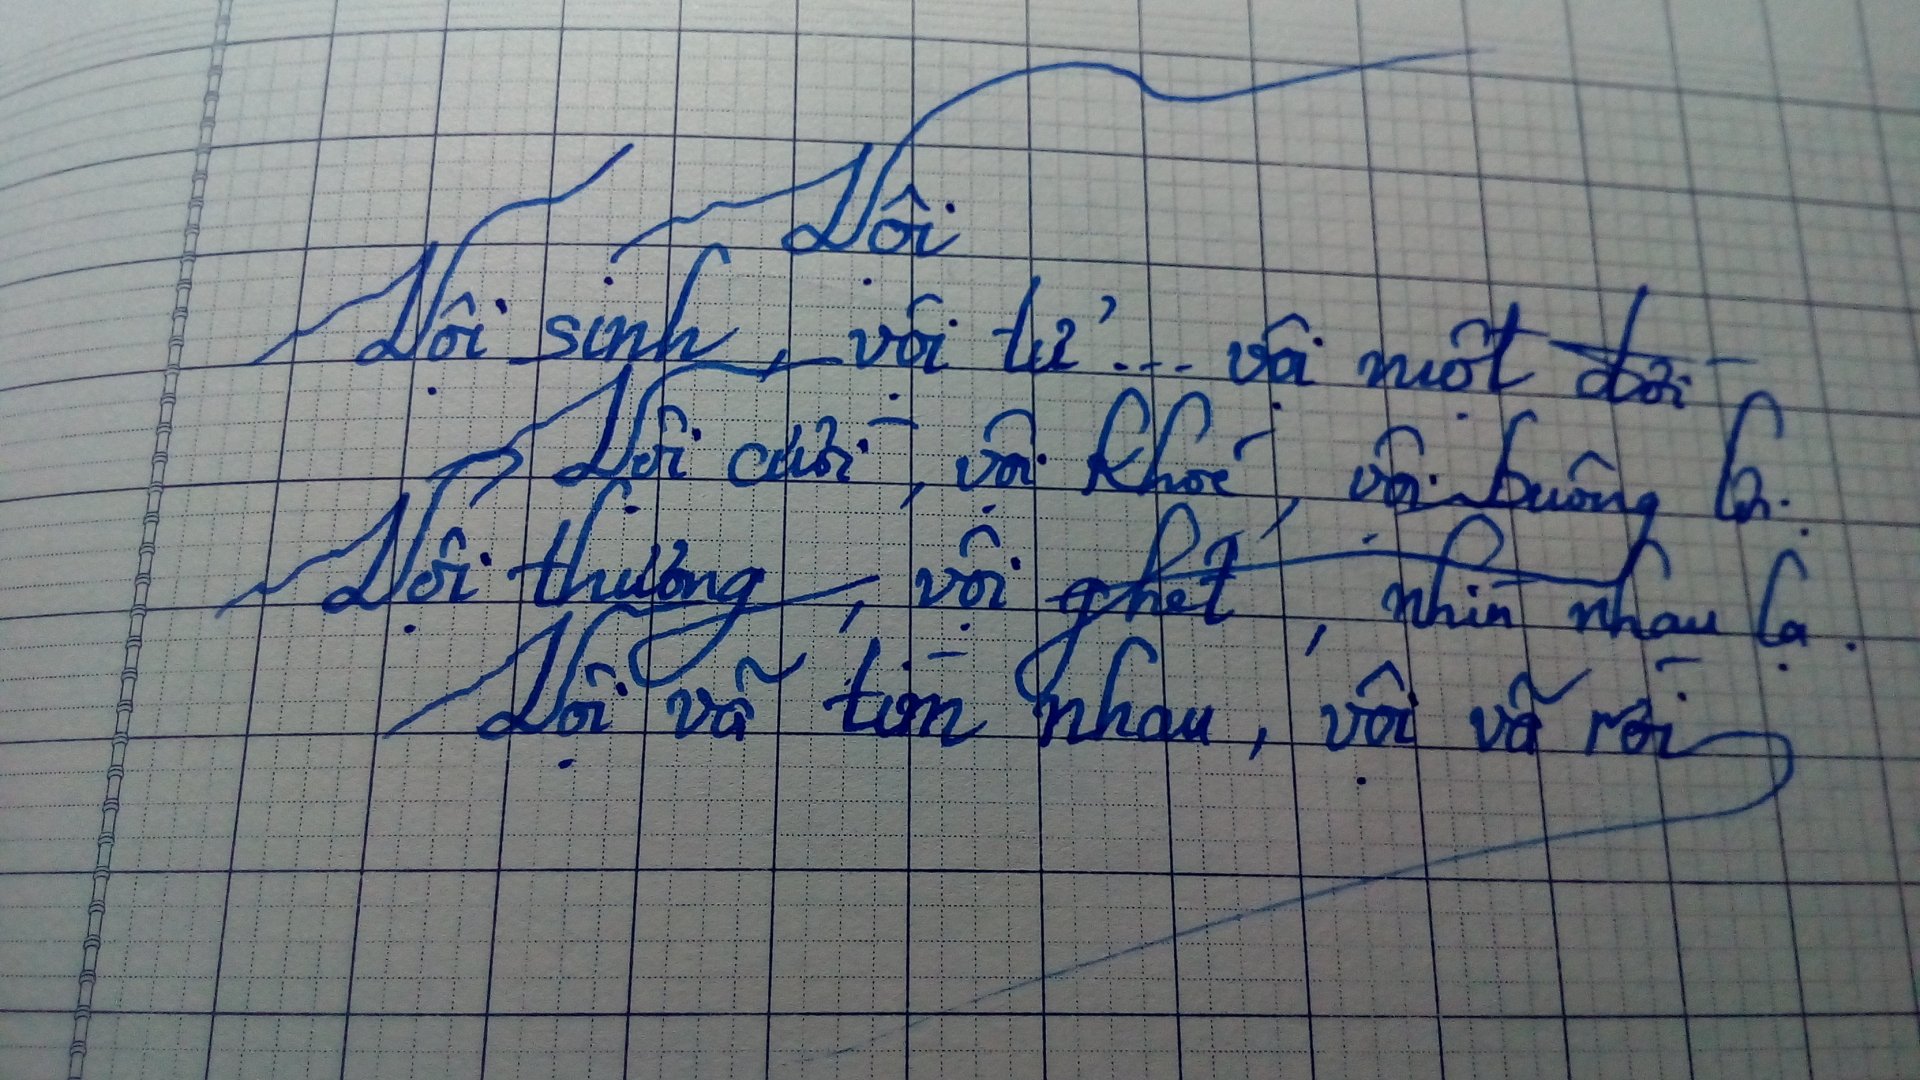 Vội
Vội sinh, vội tử... vội một đời
Vội cười, vội khóc, vội buông lơi.
Vội thương, vội ghét, nhìn nhau lạ.
Vội vã tìm nhau, vội vã rời